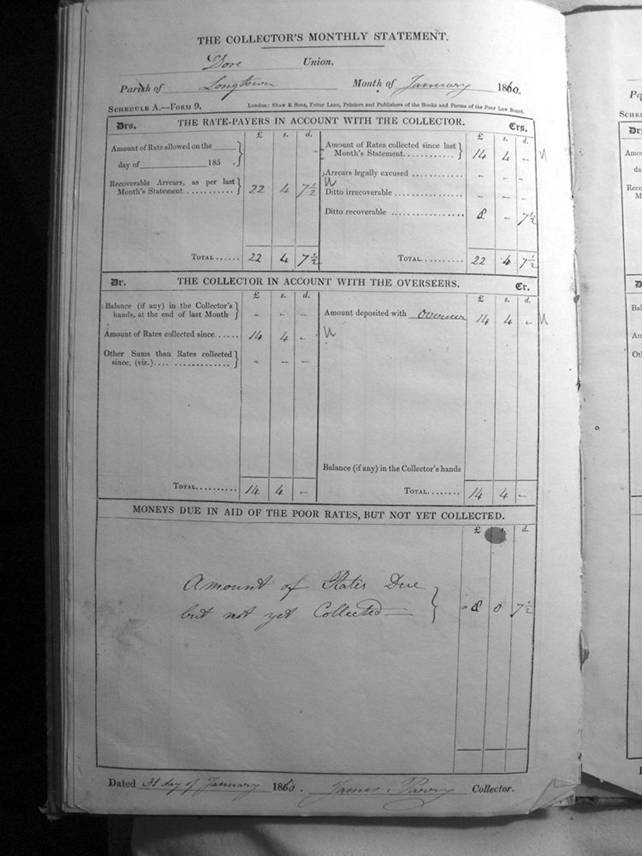 THE COLLECTOR'S MONTHLY STATEMENT.
Dore Union.
Parish of Longtown Month of January 1860.
SCHEDULE A.—FORM 9. London: Shaw & Sons, Fetter Lane, Printers and Publishers of the Books and Forms of the Poor Law Board.
Drs. THE RATE-PAYERS IN ACCOUNT WITH THE COLLECTOR. Crs.
£ s. d. £ s. d.
Amount of Rate allowed on the
day of 185 .
Amount of Rates collected since last
Month's Statement............ 14 4 -
Arrears legally excused ............ - - -
Recoverable Arrears, as per last
Month's Statement ............ 22 4 7½
Ditto irrecoverable ............ - - -
Ditto recoverable ............ 8 - 7½
TOTAL...... 22 4 7½ TOTAL......... 22 4 7½
Dr. THE COLLECTOR IN ACCOUNT WITH THE OVERSEERS. Cr.
£ s. d. £ s. d.
Balance (if any) in the Collector's
hands, at the end of last Month - - -
Amount deposited with overseer 14 4 -
Amount of Rates collected since..... 14 4 -
Other Sums than Rates collected
since, (viz.).................. - - -
Balance (if any) in the Collector's hands
TOTAL......... 14 4 - TOTAL......... 14 4 -
MONEYS DUE IN AID OF THE POOR RATES, BUT NOT YET COLLECTED.
£ s. d.
Amount of Rates Due
but not yet Collected 8 0 7½
Dated 31 day of January 1860. James Parry Collector.